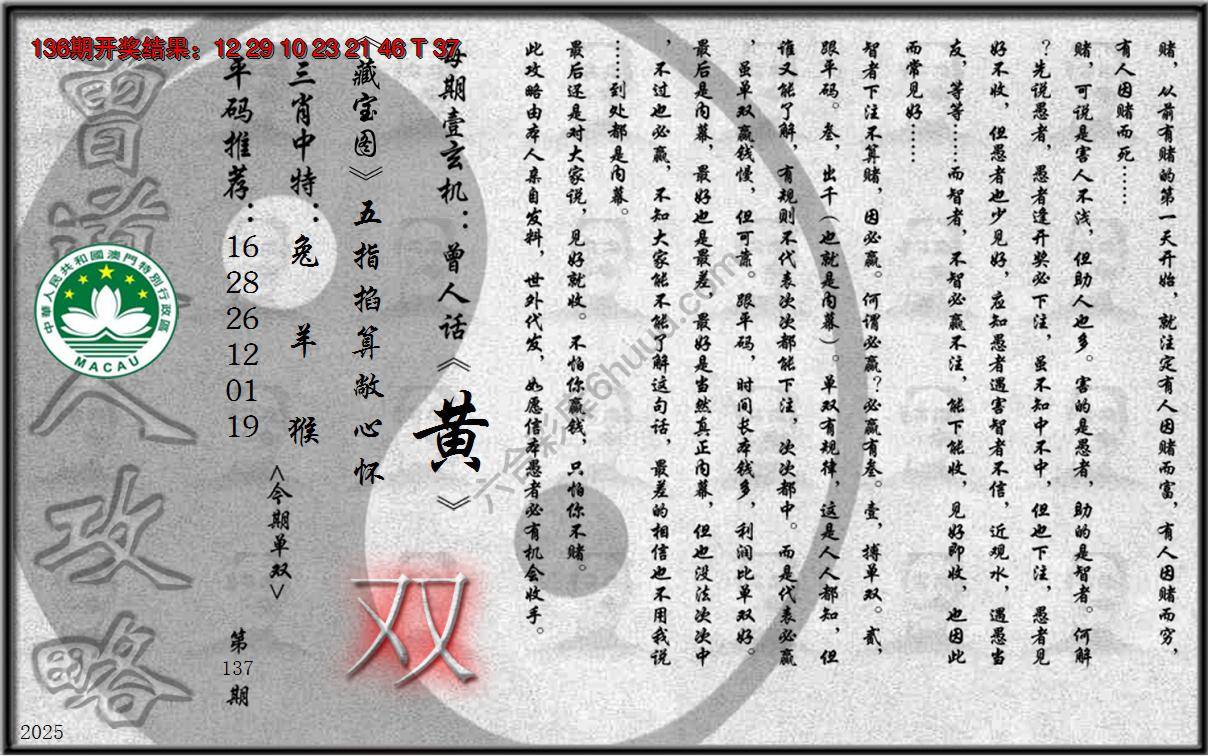 136期开奖结果：12 29 10 23 21 46 T 37
赌，从前有赌的第一天开始，就注定有人因赌而富，有人因赌而穷，
有人因赌而死……
赌，可说是害人不浅，但助人也多。害的是愚者，助的是智者。何解
？先说愚者，愚者逢开奖必下注，虽不知中不中，但也下注，愚者见
好不收，但愚者也少见好，应知愚者遇害智者不信，近观水，遇愚当
友，等等……而智者，不智必赢不注，能下能收，见好即收，也因此
而常见好……
智者下注不算赌，因必赢。何谓必赢？必赢有叁。壹，搏单双。贰，
跟平码。叁，出千（也就是内幕）。单双有规律，这是人人都知，但
谁又能了解，有规则不代表次次都能下注，次次都中。而是代表必赢
，虽单双赢钱慢，但可靠。跟平码，时间长本钱多，利润比单双好。
最后是内幕，最好也是最差，最好是当然真正内幕，但也没法次次中
，不过也必赢，不知大家能不能了解这句话，最差的相信也不用我说
……到处都是内幕。
最后还是对大家说，见好就收。不怕你赢钱，只怕你不赌。
此攻略由本人亲自发料，世外代发，如愿信本愚者必有机会收手。
每期壹玄机：曾人话《黄》
《藏宝图》五指掐算敞心怀
双
三肖中特：兔 羊 猴
<今期单双>
平码推荐：16 28 26 12 01 19
第137期
曾道人攻略
中華人民共和國澳門特別行政區
MACAU
六合彩库6huuu.com
2025